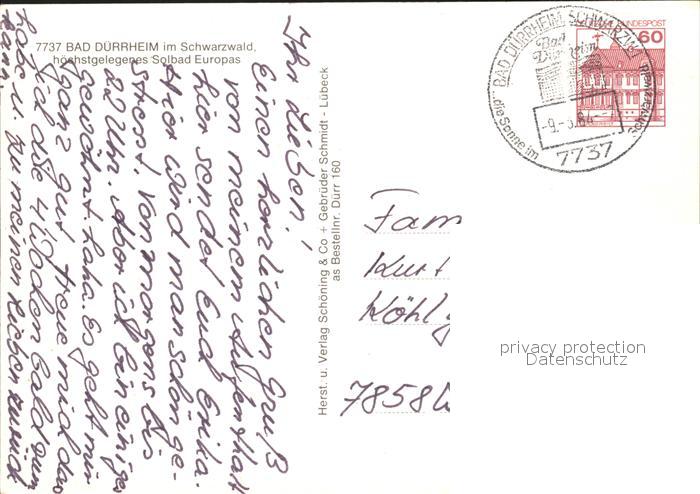 7737 BAD DÜRRHEIM im Schwarzwald,
höchstgelegenes Solbad Europas
Ihr Lieben!
Einen herzlichen Gruß
von meinem Aufenthalt
hier sendet Euch Erika.
Hier wird man schön ge-
stresst, von morgens bis
22 Uhr. Aber ich bin einiges
gewöhnt. haha. Es geht mir
ganz gut freue mich das
ich die 4 Wochen bald rum
habe u. zu meinen Lieben zurück
kann.
Herst. u. Verlag Schöning & Co + Gebrüder Schmidt - Lübeck
as Bestellnr. Dürr 160
BAD DÜRRHEIM SCHWARZW
Bad
Dürrheim
-9.-5.84
die Sonne im
Schwarzwald
7737
BUNDESPOST
60
Fam
Kurt
Köhly
7858 W
privacy protection
Datenschutz